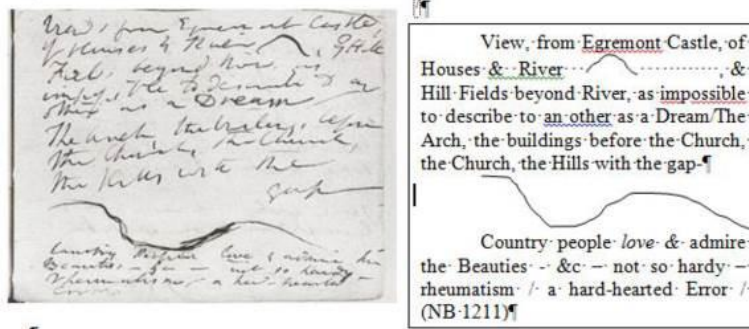 View, from Egremont Castle,
of Houses & River , & Hill
Fields beyond River, as
impossible to describe to an
other as a Dream
The Arch, the buildings, before
the Church, the Church,
the Hills with the
gap –
Country People love & admire the
Beauties – &c – not so hardy –
Rheumatism / a hard-hearted
Error
¶
View, from Egremont Castle, of
Houses & River --------------- , &
Hill Fields beyond River, as impossible
to describe to an other as a Dream/The
Arch, the buildings before the Church,
the Church, the Hills with the gap-¶
Country people love & admire
the Beauties - &c – not so hardy –
rheumatism / a hard-hearted Error /
(NB 1211)¶